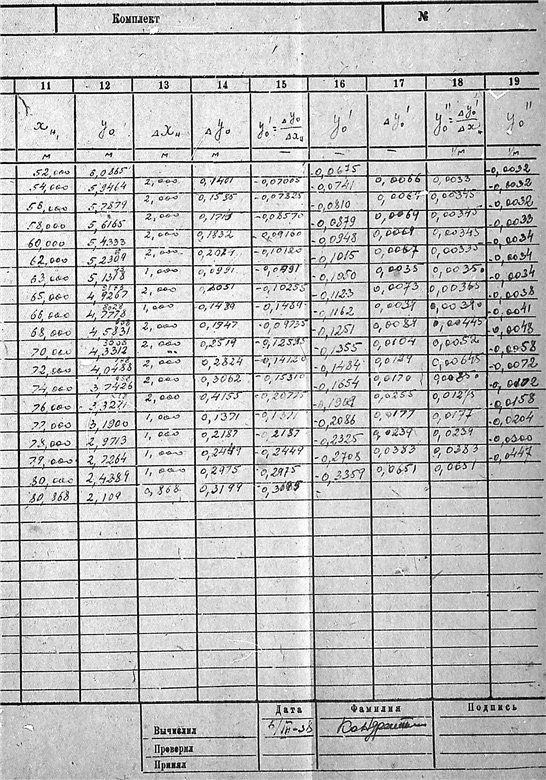 Комплект №
11 12 13 14 15 16 17 18 19
xн₁ y₀ Δxн Δy₀ y₀' = Δy₀/Δxн y₀' Δy₀' y₀'' = Δy₀'/Δxн y₀''
м м м м — — — 1/м 1/м
52,000 6,0865 -0,0675 -0,0032
2,000 0,1401 -0,07005 0,0066 0,0033
54,000 5,9464 -0,0741 -0,0032
2,000 0,0069 0,00345
56,000 5,7879 -0,0810 -0,0032
2,000 -0,08570 0,0069 0,00345
58,000 5,6165 -0,0879 -0,0033
2,000 0,1832 -0,09160 0,0069 0,00345
60,000 5,4333 -0,0948 -0,0034
2,000 -0,10120 0,0067 0,00335
62,000 5,2309 -0,1015 -0,0034
1,000 0,0991 -0,0991 0,0035 0,0035
63,000 5,1318 -0,1050 -0,0034
2,000 0,2051 -0,10255 0,0073 0,00365
65,000 4,9267 -0,1123 -0,0038
1,000 0,1489 -0,1489 0,0039 0,0039
66,000 4,7778 -0,1162 -0,0041
2,000 0,1947 -0,09735 0,0089 0,00445
68,000 4,5831 -0,1251 -0,0048
2,000 0,2519 -0,12595 0,0104 0,0052
70,000 4,3312 -0,1355 -0,0058
2,000 0,2824 -0,14120 0,0129 0,00645
72,000 4,0488 -0,1484 -0,0072
2,000 0,3062 -0,15310 0,0170
74,000 3,7426 -0,1654
2,000 0,4155 -0,20775 0,0255 0,01275
76,000 3,3271 -0,0158
1,000 0,1371 -0,1371 0,0177 0,0177
77,000 3,1900 -0,2086 -0,0204
1,000 0,2187 -0,2187 0,0239 0,0239
78,000 2,9713 -0,2325 -0,0300
1,000 0,2449 -0,2449 0,0383 0,0383
79,000 2,7264 -0,2708 -0,0447
1,000 0,2975 -0,2975 0,0651 0,0651
80,000 2,4289 -0,3359
0,868 0,3199
80,868 2,109
Дата Фамилия Подпись
Вычислил
Проверил
Принял